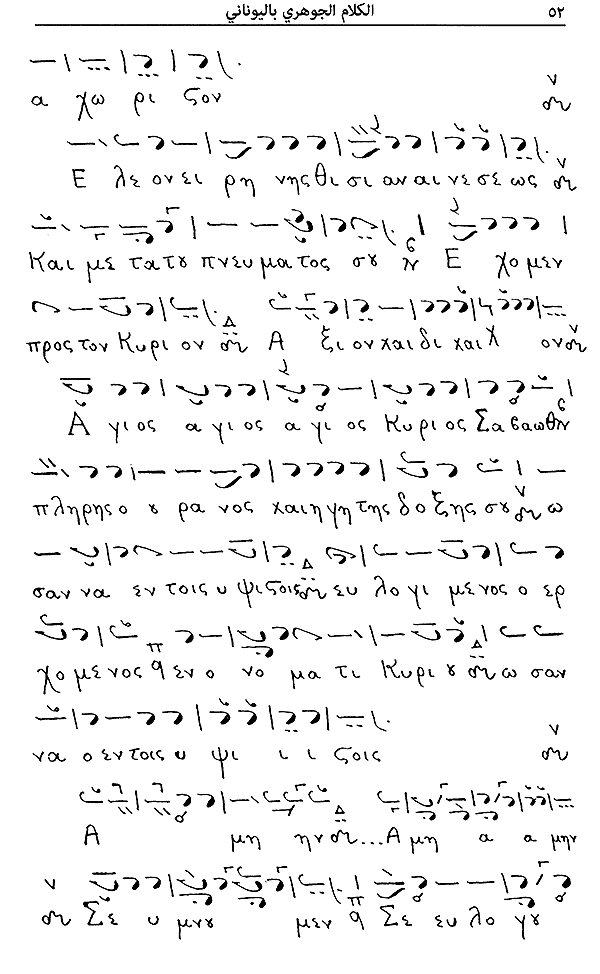 ٥٢ الكلام الجوهري باليوناني
α χω ρι ζον
Ε λε ον ει ρη νης θι σι αν αι νε σε ως
Και με τα τȣ πνευ μα τος σȣ Ε χο μεν
προς τον Κυρι ον Α ξι ον και δι και ον
Α γι ος α γι ος α γι ος Κυ ρι ος Σα βα ωθ
πλη ρης ο ȣ ρα νος και η γη της δο ξης σȣ ω
σαν να εν τοις υ ψι ζοις ευ λο γι με νος ο ερ
χο με νος εν ο νο μα τι Κυ ρι ȣ ω σαν
να ο εν τοις υ ψι ι ι ζοις
Α μη ην ... Α μη α α μην
Σε υ μνȣ μεν Σε ευ λο γȣ